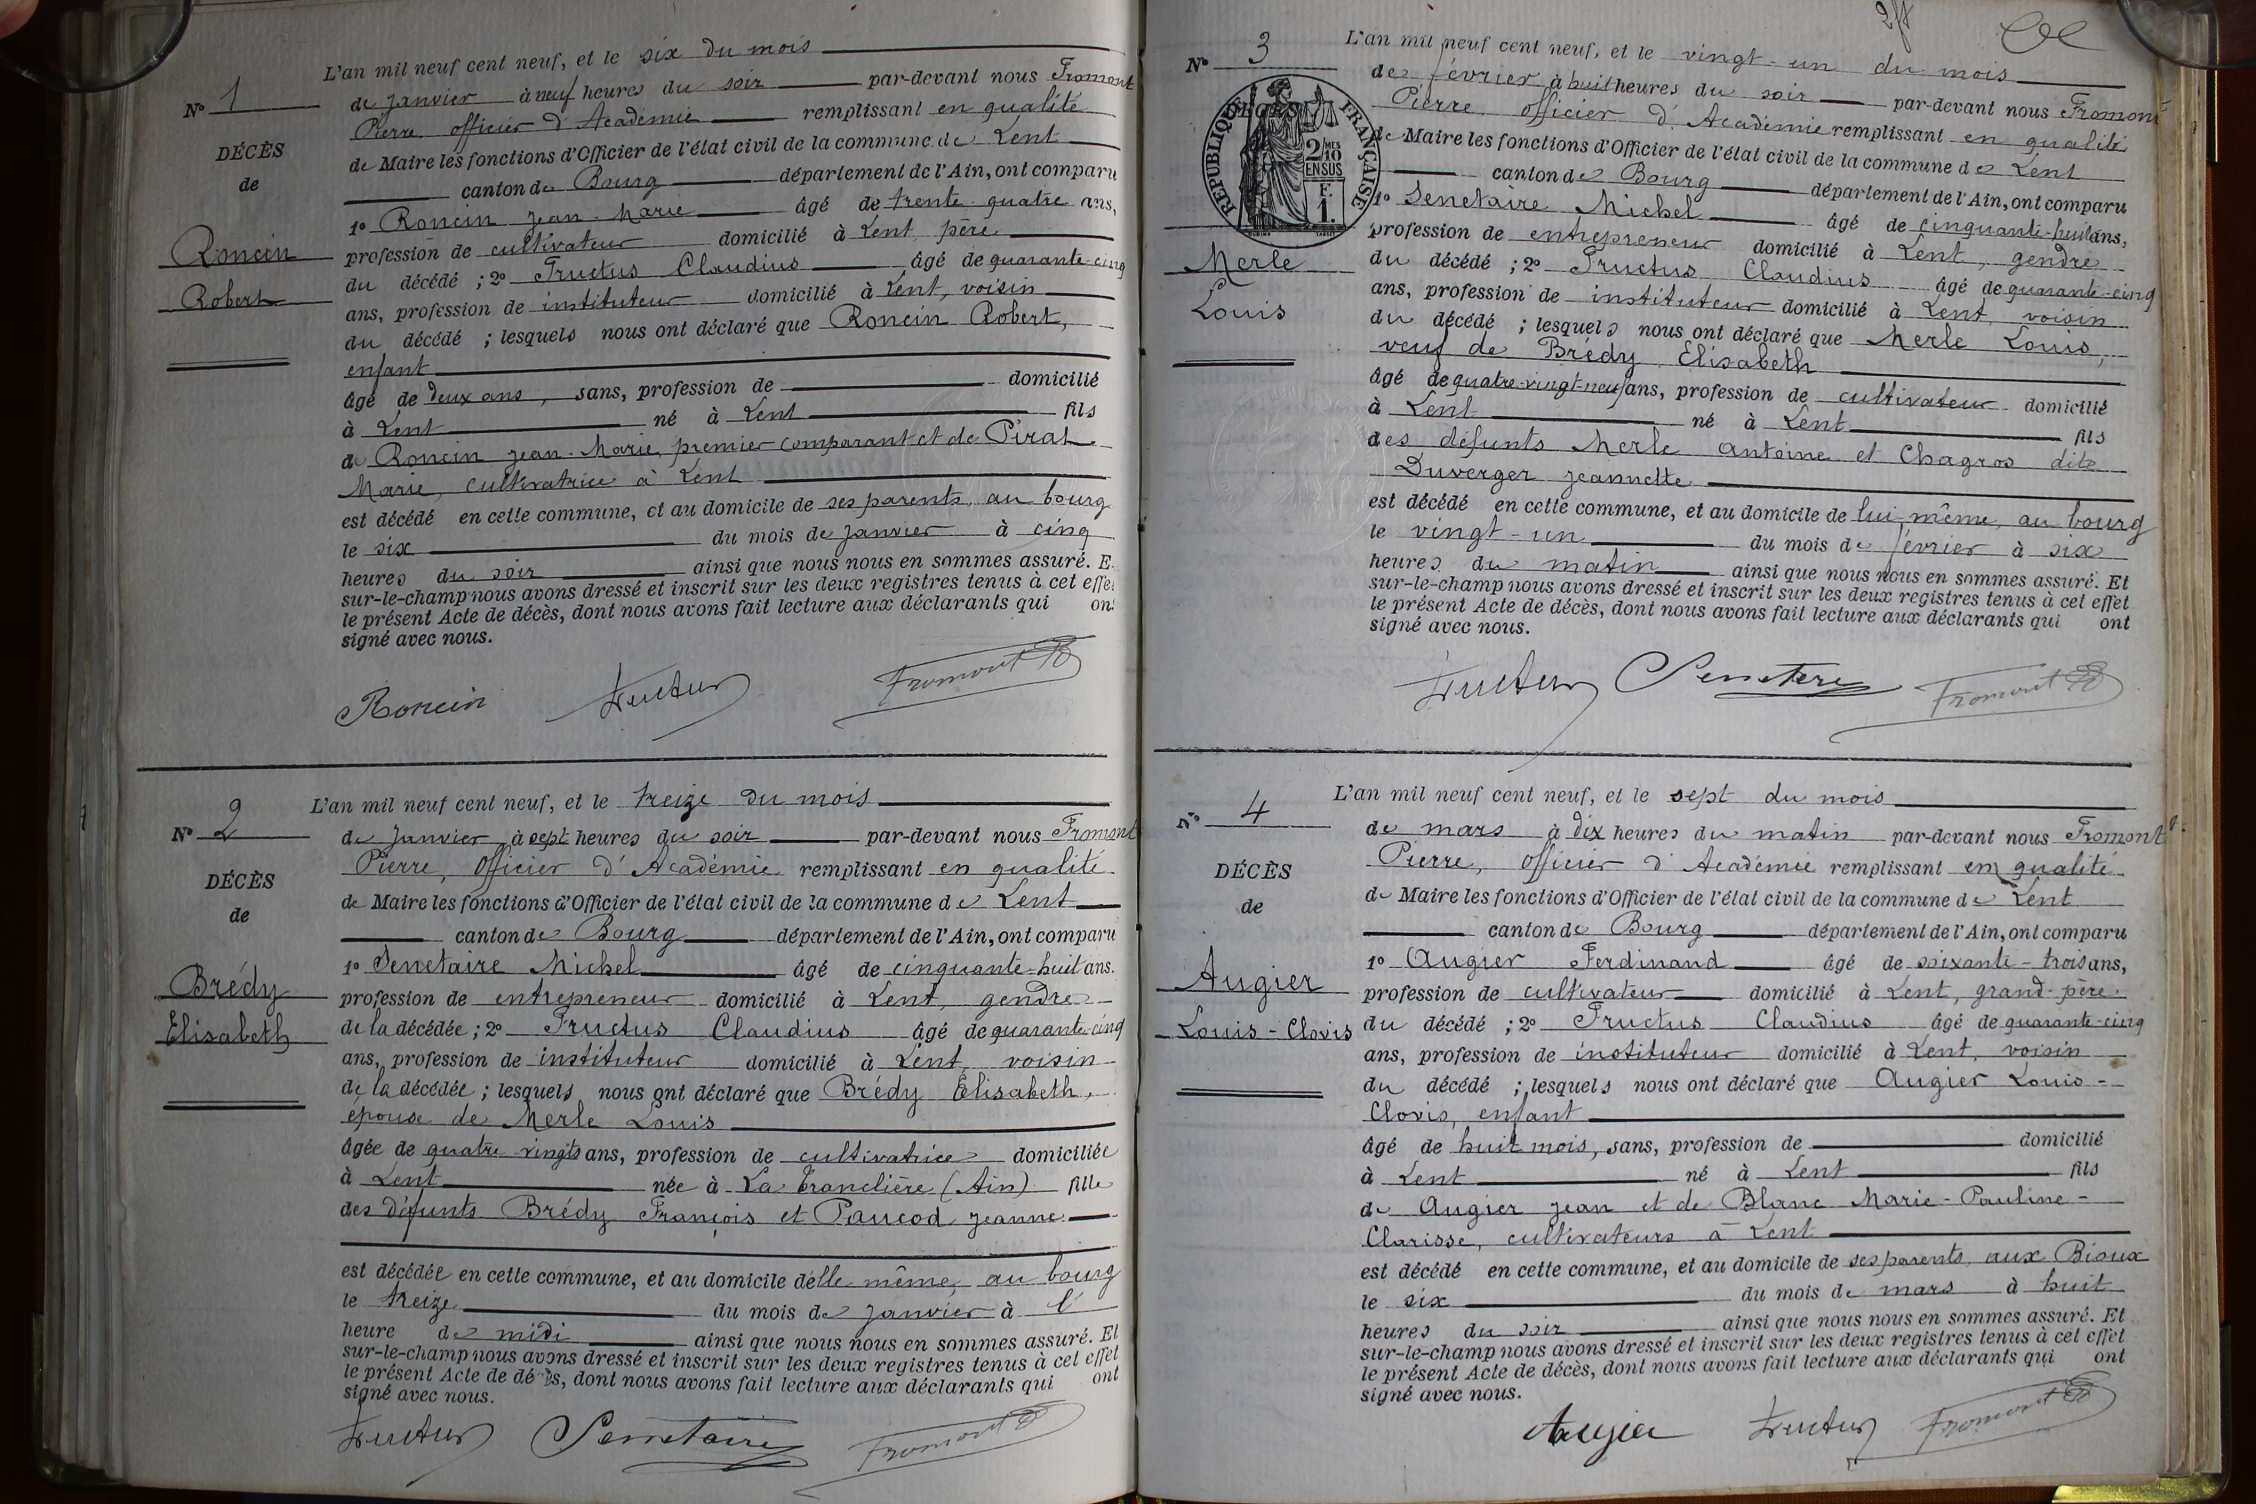 L'an mil neuf cent neuf, et le six du mois
N° 1
de janvier à neuf heures du soir par-devant nous Fromont
Pierre, officier d'Académie remplissant en qualité
DÉCÈS
de Maire les fonctions d'Officier de l'état civil de la commune de Lent
de
canton de Bourg département de l'Ain, ont comparu
1° Roncin Jean-Marie âgé de trente-quatre ans,
Roncin
profession de cultivateur domicilié à Lent, père
du décédé ; 2° Fructus Claudius âgé de quarante-cinq
Robert
ans, profession de instituteur domicilié à Lent, voisin
du décédé ; lesquels nous ont déclaré que Roncin Robert,
enfant
âgé de deux ans, sans, profession de domicilié
à Lent né à Lent fils
de Roncin Jean-Marie, premier comparant et de Pirat
Marie, cultivatrice à Lent
est décédé en cette commune, et au domicile de ses parents, au bourg
le six du mois de janvier à cinq
heures du soir ainsi que nous nous en sommes assuré. E
sur-le-champ nous avons dressé et inscrit sur les deux registres tenus à cet effet
le présent Acte de décès, dont nous avons fait lecture aux déclarants qui ont
signé avec nous.
Roncin Fructus Fromont
L'an mil neuf cent neuf, et le treize du mois
2
N° 2
de janvier à sept heures du soir par-devant nous Fromont
Pierre, officier d'Académie remplissant en qualité
DÉCÈS
de Maire les fonctions d'Officier de l'état civil de la commune de Lent
de
canton de Bourg département de l'Ain, ont comparu
1° Senetaire Michel âgé de cinquante-huit ans.
Brédy
profession de entrepreneur domicilié à Lent, gendre
de la décédée ; 2° Fructus Claudius âgé de quarante-cinq
Elisabeth
ans, profession de instituteur domicilié à Lent, voisin
de la décédée ; lesquels nous ont déclaré que Brédy Elisabeth,
épouse de Merle Louis
âgée de quatre-vingts ans, profession de cultivatrice domiciliée
à Lent née à La Tranclière (Ain) fille
des défunts Brédy François et Paucod Jeanne
est décédée en cette commune, et au domicile d'elle même, au bourg
le treize du mois de janvier à l'
heure de midi ainsi que nous nous en sommes assuré. Et
sur-le-champ nous avons dressé et inscrit sur les deux registres tenus à cet effet
le présent Acte de décès, dont nous avons fait lecture aux déclarants qui ont
signé avec nous.
Fructus Senetaire Fromont
L'an mil neuf cent neuf, et le vingt-un du mois
N° 3
de février à huit heures du soir par-devant nous Fromont
Pierre, officier d'Académie remplissant en qualité
RÉPUBLIQUE FRANÇAISE
2/10 MES EN SUS
F. 1.
de Maire les fonctions d'Officier de l'état civil de la commune de Lent
canton de Bourg département de l'Ain, ont comparu
1° Senetaire Michel âgé de cinquante-huit ans,
profession de entrepreneur domicilié à Lent, gendre
Merle
du décédé ; 2° Fructus Claudius âgé de quarante-cinq
ans, profession de instituteur domicilié à Lent, voisin
Louis
du décédé ; lesquels nous ont déclaré que Merle Louis,
veuf de Brédy Elisabeth
âgé de quatre-vingt-neuf ans, profession de cultivateur domicilié
à Lent né à Lent fils
des défunts Merle Antoine et Chagros dite
Duverger Jeannette
est décédé en cette commune, et au domicile de lui-même, au bourg
le vingt-un du mois de février à six
heures du matin ainsi que nous nous en sommes assuré. Et
sur-le-champ nous avons dressé et inscrit sur les deux registres tenus à cet effet
le présent Acte de décès, dont nous avons fait lecture aux déclarants qui ont
signé avec nous.
Fructus Senetere Fromont
L'an mil neuf cent neuf, et le sept du mois
N° 4
de mars à dix heures du matin par-devant nous Fromont
Pierre, officier d'Académie remplissant en qualité
DÉCÈS
de Maire les fonctions d'Officier de l'état civil de la commune de Lent
de
canton de Bourg département de l'Ain, ont comparu
1° Augier Ferdinand âgé de soixante-trois ans,
Augier
profession de cultivateur domicilié à Lent, grand-père
Louis-Clovis
du décédé ; 2° Fructus Claudius âgé de quarante-cinq
ans, profession de instituteur domicilié à Lent, voisin
du décédé ; lesquels nous ont déclaré que Augier Louis-
Clovis, enfant
âgé de huit mois, sans, profession de domicilié
à Lent né à Lent fils
de Augier Jean et de Blanc Marie-Pauline-
Clarisse, cultivateurs à Lent
est décédé en cette commune, et au domicile de ses parents, aux Bioux
le six du mois de mars à huit
heures du soir ainsi que nous nous en sommes assuré. Et
sur-le-champ nous avons dressé et inscrit sur les deux registres tenus à cet effet
le présent Acte de décès, dont nous avons fait lecture aux déclarants qui ont
signé avec nous.
Augier Fructus Fromont